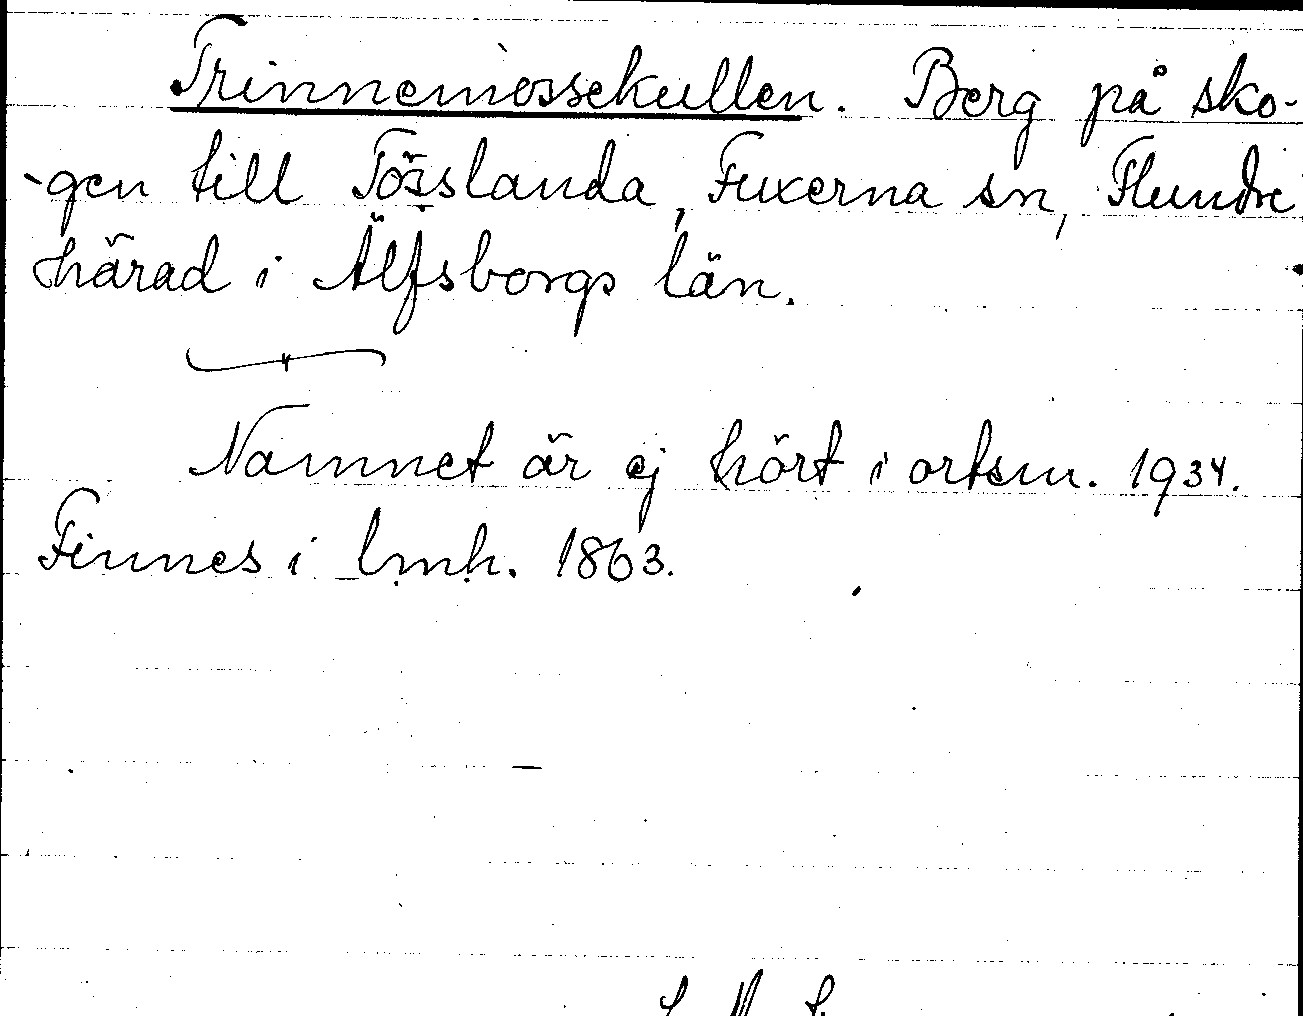 Trinnemossekullen. Berg på sko-
-gen till Tösslanda, Fuxerna sn, Flundre
härad i Älfsborgs län.
Namnet är ej hört i ortsm. 1934.
Finnes i lmh. 1863.